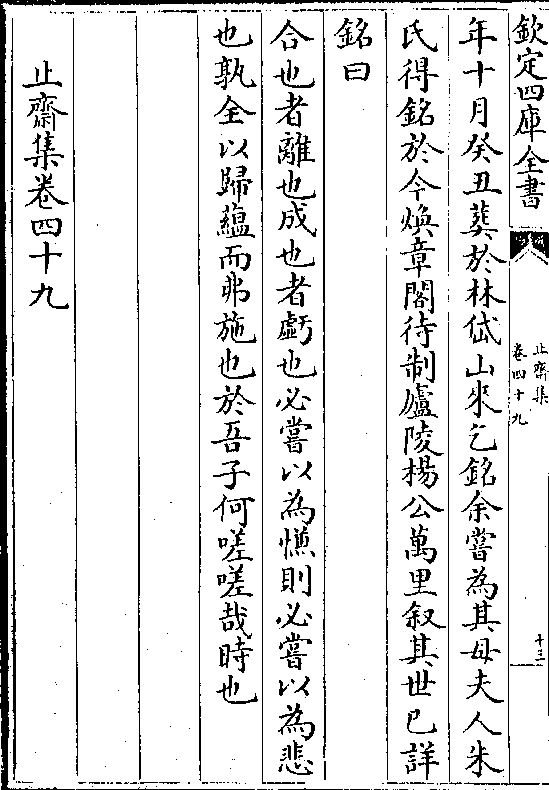 欽定四庫全書
止齋集
卷四十九
十三
年十月癸丑葬於林岱山來乞銘余嘗為其母夫人朱
氏得銘於今煥章閣待制廬陵楊公萬里叙其世已詳
銘曰
合也者離也成也者虧也必嘗以為慊則必嘗以為悲
也孰全以歸藴而弗施也於吾子何嗟嗟哉時也
止齋集卷四十九